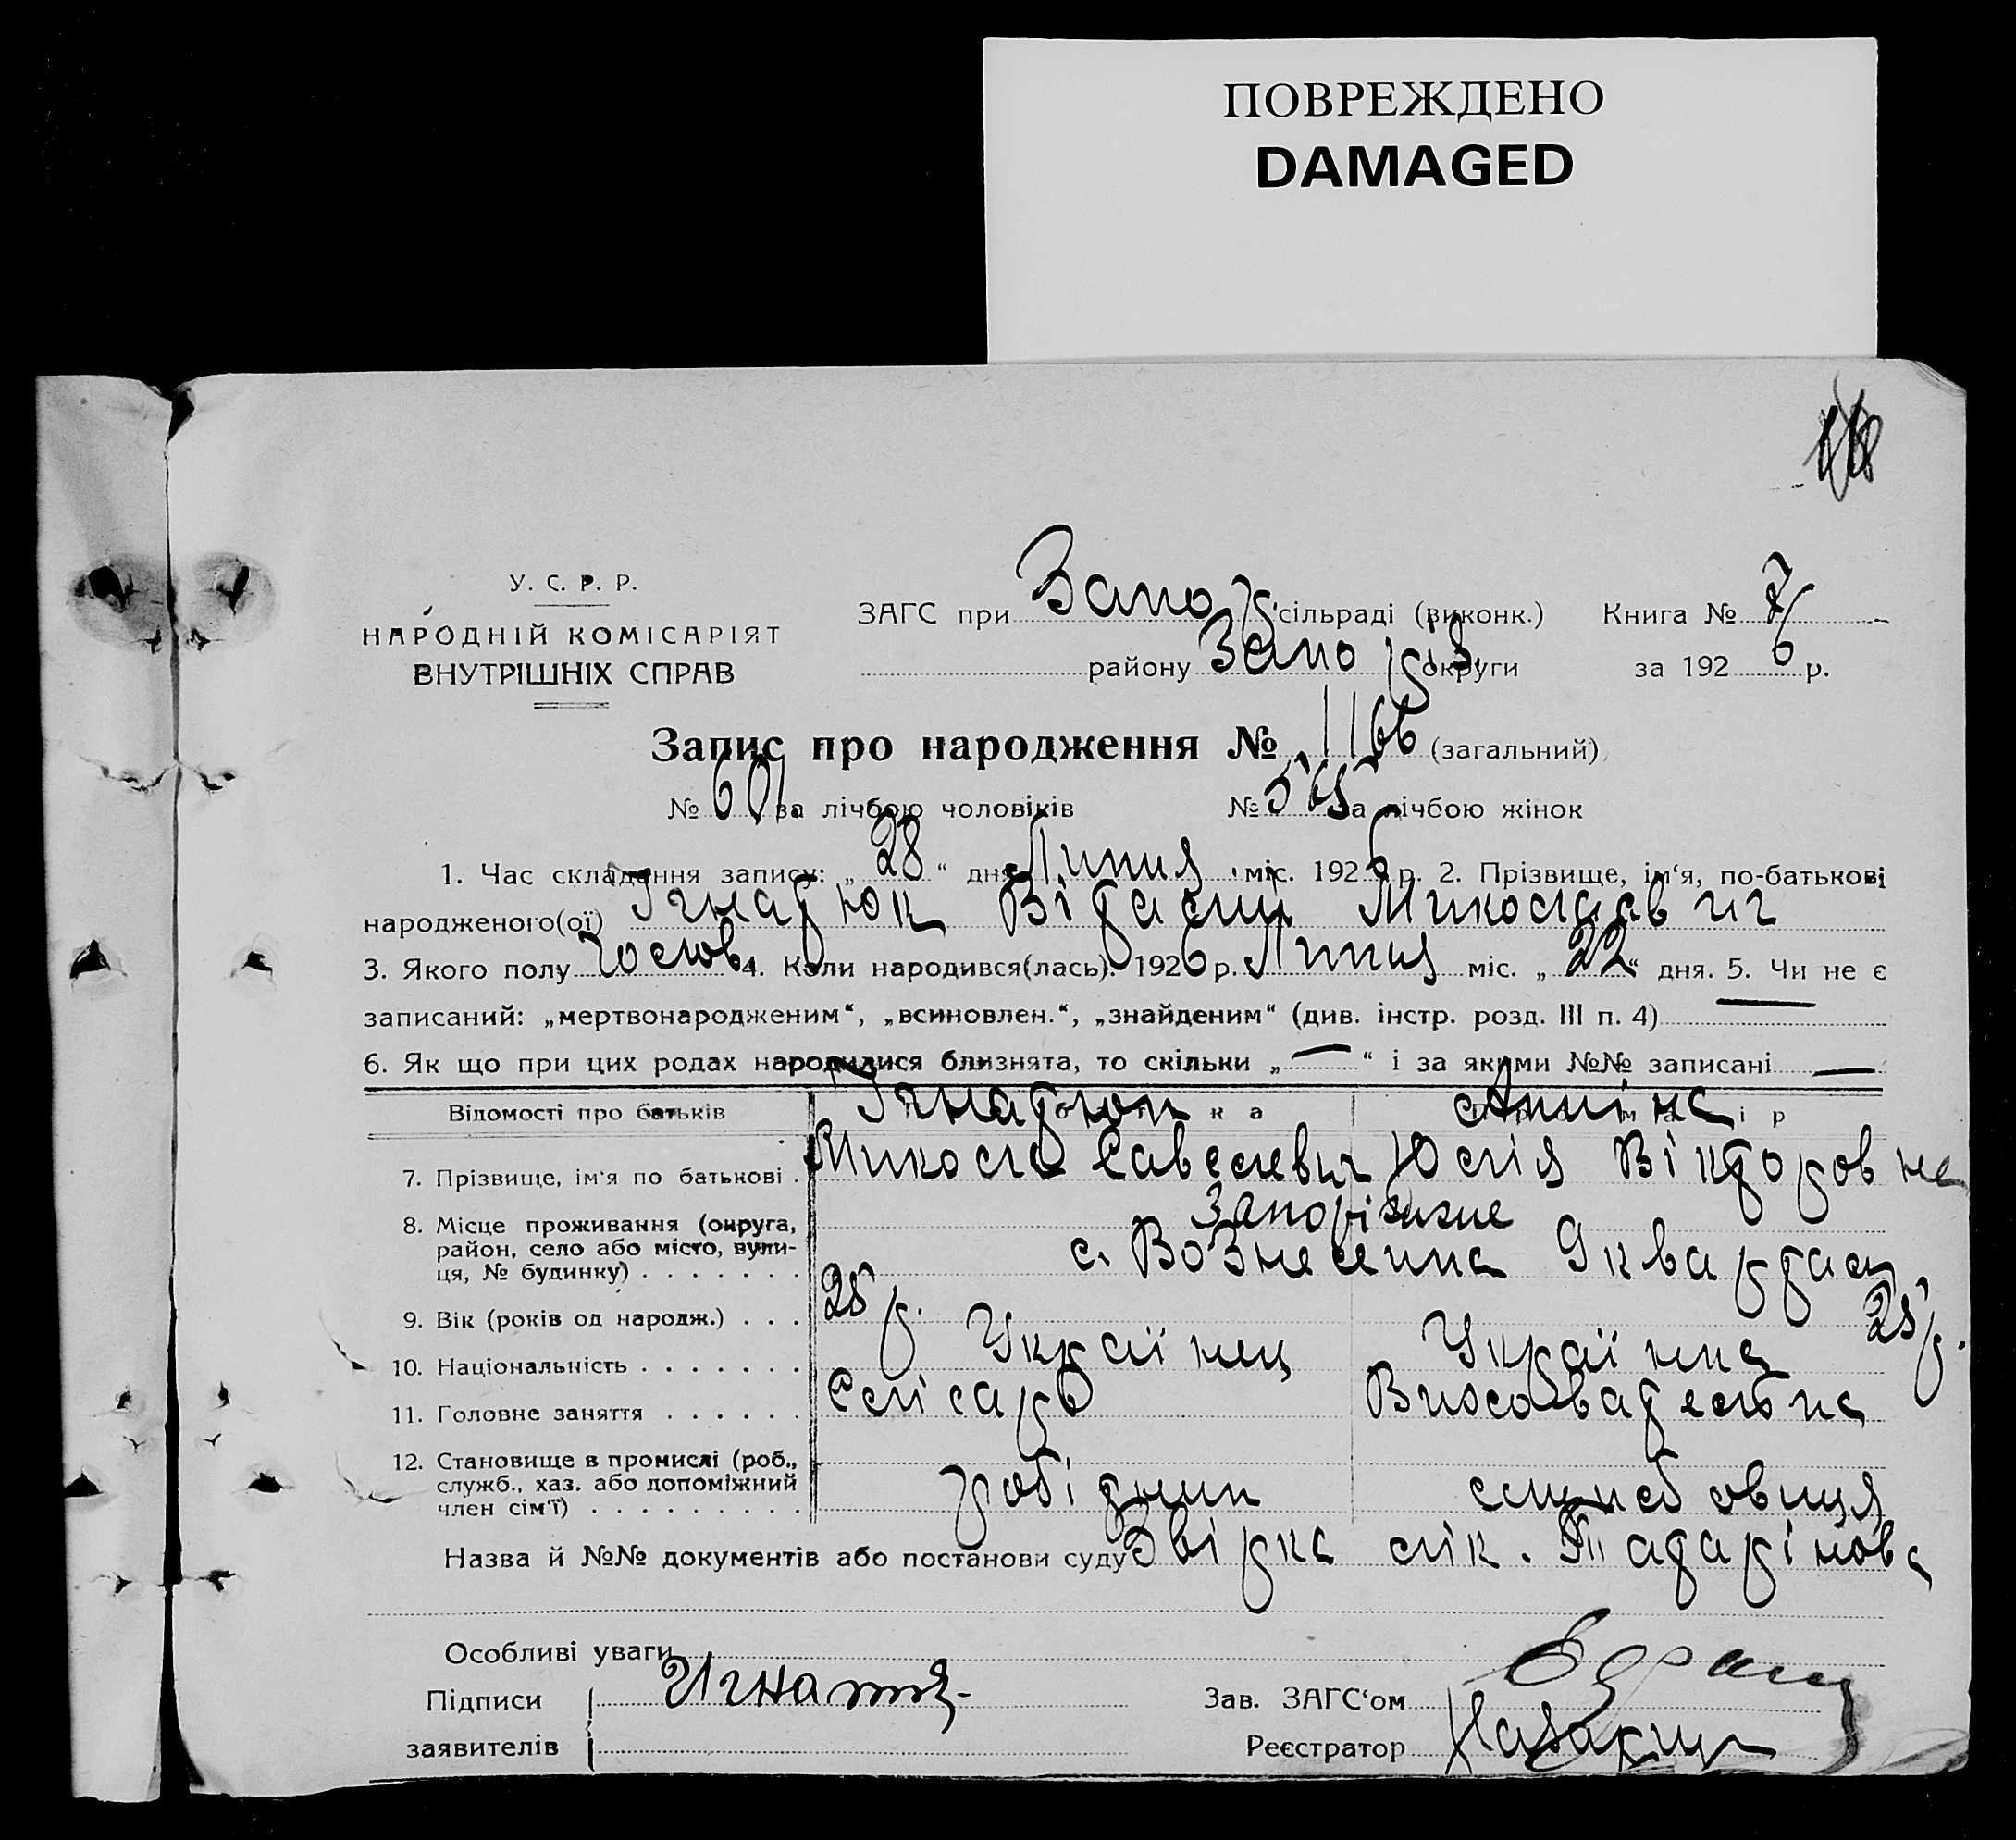 ПОВРЕЖДЕНО
DAMAGED
У. С. Р. Р.
НАРОДНІЙ КОМІСАРІЯТ
ВНУТРІШНІХ СПРАВ
ЗАГС при Запор. сільраді (виконк.) Книга № 7/
району Запоріз. округи за 1926 р.
Запис про народження № 1166 (загальний)
№ 601 за лічбою чоловіків № 565 за лічбою жінок
1. Час складання запису: „28“ дня Липня міс. 1926 р. 2. Прізвище, ім‘я, по-батькові
народженого(ої) Ігнатюк Віталий Миколаевич
3. Якого полу чолов. 4. Коли народився(лась): 1926 р. Липня міс. „22“ дня. 5. Чи не є
записаний: „мертвонародженим“, „всиновлен.“, „знайденим“ (див. інстр. розд. III п. 4) —
6. Як що при цих родах народилися близнята, то скільки „—“ і за якими №№ записані —
Відомості про батьків Ігнатюк
7. Прізвище, ім‘я по батькові . Микола Савелевич Юлія Вікторовна
8. Місце проживання (округа, район, село або місто, вулиця, № будинку) . . . . . . . Запоріжжє
с. Вознесенка 9 квартал
9. Вік (років од народж.) . . . 25 р. 25 р.
10. Національність . . . . . . . Українец Українка
11. Головне заняття . . . . . . Слісарь Вихователька
12. Становище в промислі (роб., служб., хаз. або допоміжний член сім‘ї) . . . . . . . . . робітник служебовиця
Назва й №№ документів або постанови суду Звірка лік. Татарінова
Особливі уваги
Підписи заявителів
Зав. ЗАГС‘ом
Реєстратор